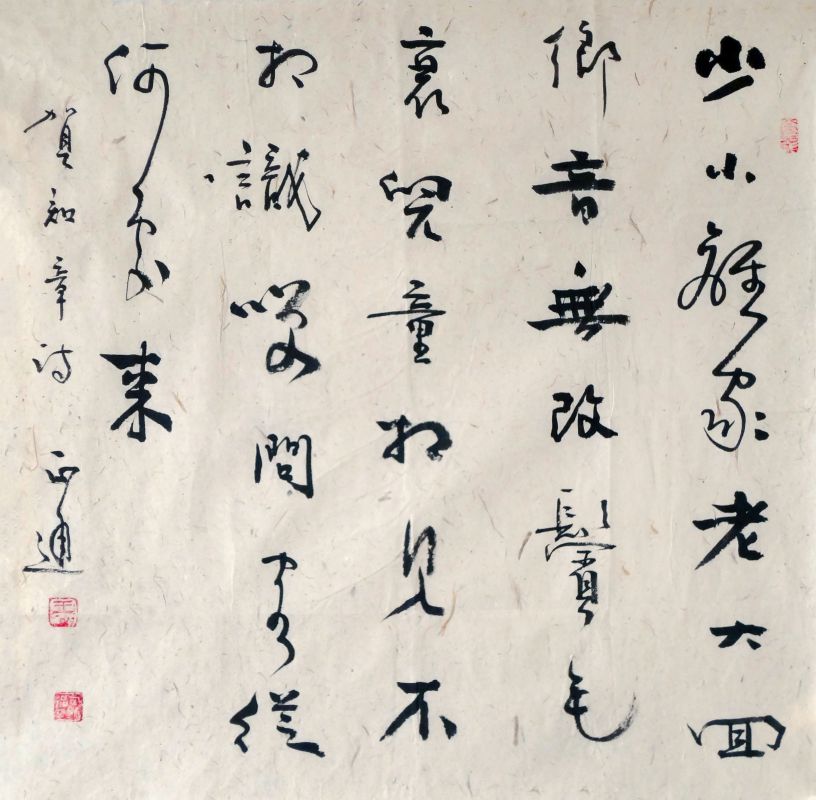 少小離家老大回
鄉音無改鬢毛
衰兒童相見不
相識笑問客從
何處來
賀知章诗 正通